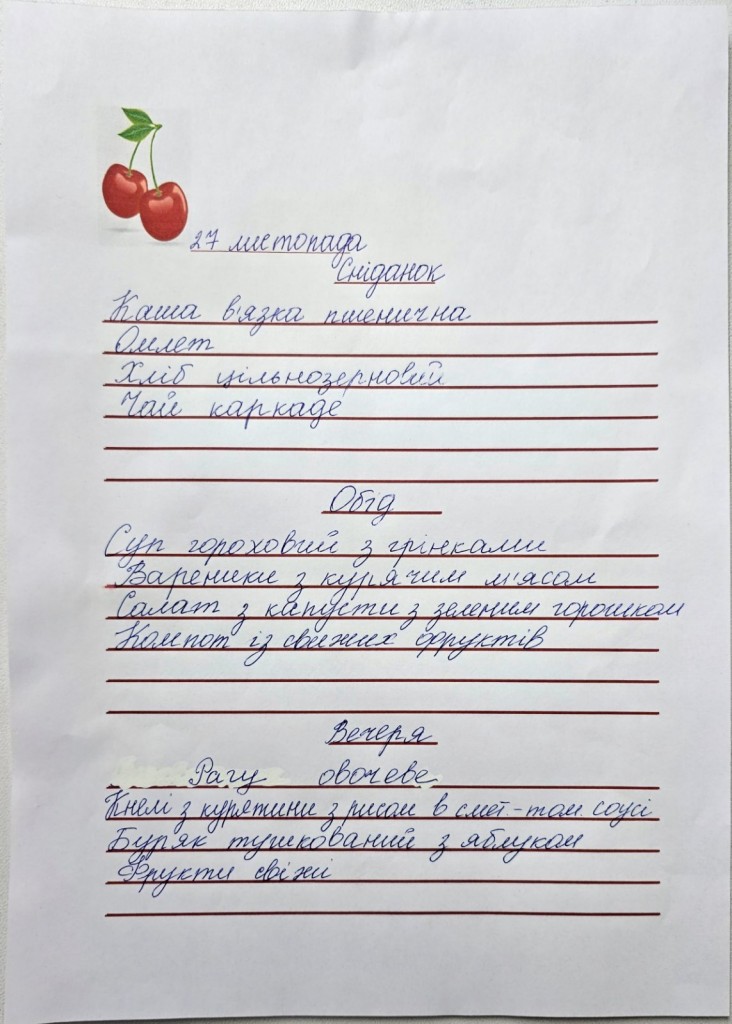 27 листопада
Сніданок
Каша в'язка пшенична
Омлет
Хліб цільнозерновий
Чай каркаде
Обід
Суп гороховий з грінками
Вареники з курячим м'ясом
Салат з капусти з зеленим горошком
Компот із свіжих фруктів
Вечеря
Рагу овочеве
Кнелі з курятини з рисом в смет.-том. соусі
Буряк тушкований з яблуком
Фрукти свіжі